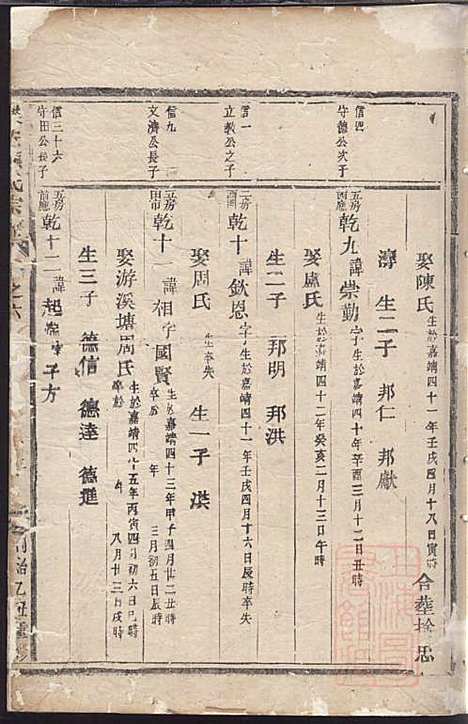 娶陳氏 生於嘉靖四十一年壬戌四月十八日寅時 合葬 思
濤 生二子 邦仁 邦獻
信四 守德公次子
五房 乾九 諱崇勤 字 生於嘉靖四十年辛酉三月十二日丑時
娶盧氏 生於嘉靖四十二年癸亥二月十三日午時
生二子 邦明 邦洪
信一 立教公之子
二房 乾十 諱欽恩 字 生於嘉靖四十一年壬戌四月十六日辰時 卒失
娶周氏 生卒失 生一子 洪
信九 文濟公長子
五房 田市 乾十一 諱相 字國賢 生於嘉靖四十三年甲子四月廿二丑時 卒於 年 三月初五日辰時
娶游溪塘周氏 生於嘉靖四十五年丙寅四月初六日巳時 卒於 年 八月十三日戌時
生三子 德信 德逵 德進
信三十六 守田公長子
五房 前應 乾十二 諱起 字子方